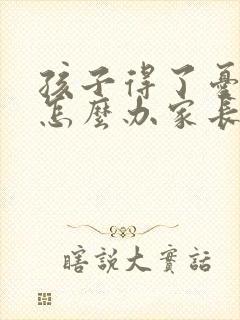 孩子得了憂
怎麼办家長
瞎說大實話